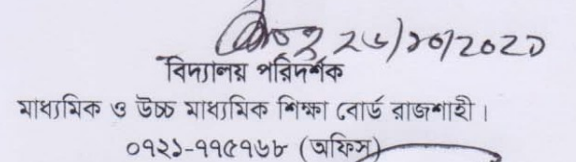 ২৬/১০/২০২১
বিদ্যালয় পরিদর্শক
মাধ্যমিক ও উচ্চ মাধ্যমিক শিক্ষা বোর্ড রাজশাহী।
০৭২১-৭৭৫৭৬৮ (অফিস)